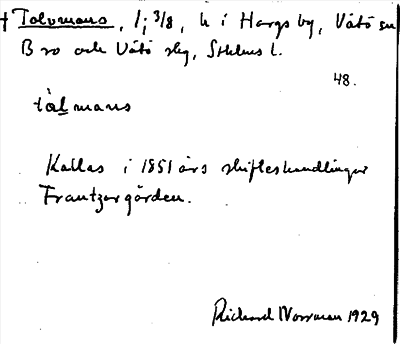 † Tolvmans, 1; 3/8, h i Hargs by, Vätö sn
Bro och Vätö skg, Sthlms l.
48.
tålmans
Kallas i 1851 års skifteshandlingar
Frantzargården.
Richard Norrman 1929